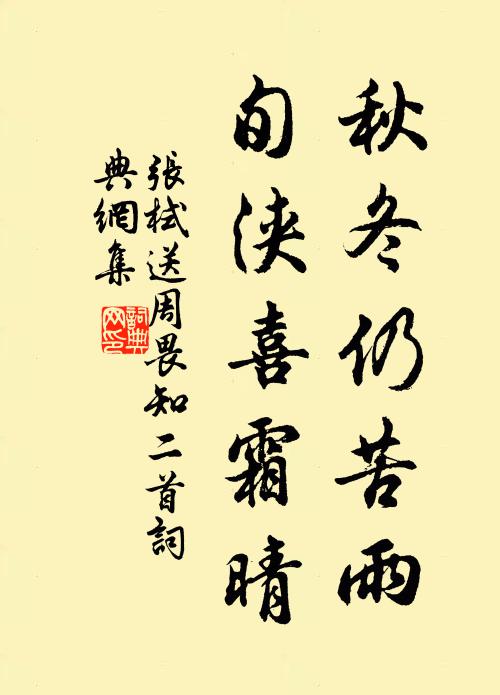 秋冬仍苦雨
旬浹喜霜晴
張栻送周畏知二首詞
典網集
詞典网印